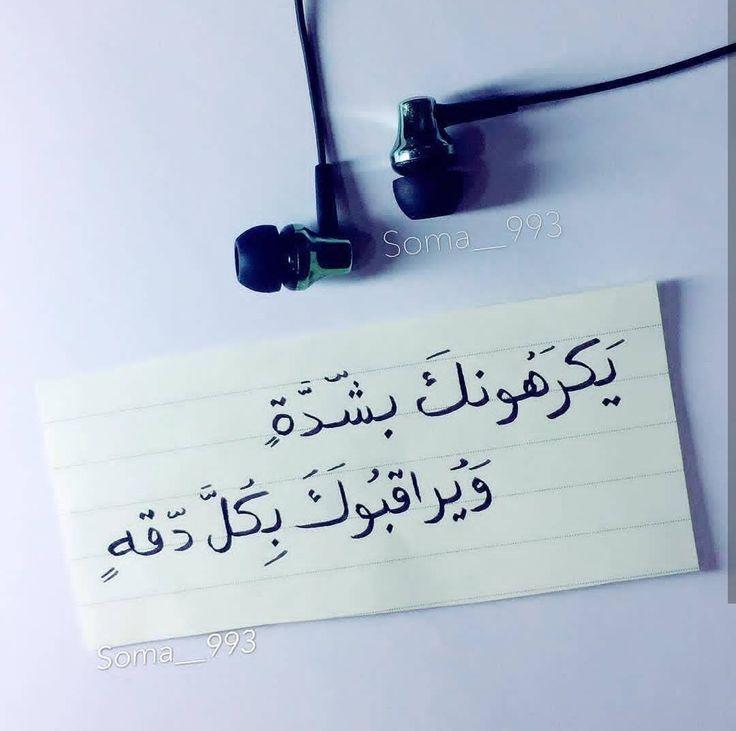 Soma__993
يَكرَهُونكَ بشّدَّةٍ
وَيُراقبُوكََ بِكُلَّ دّقهٍ
Soma__993